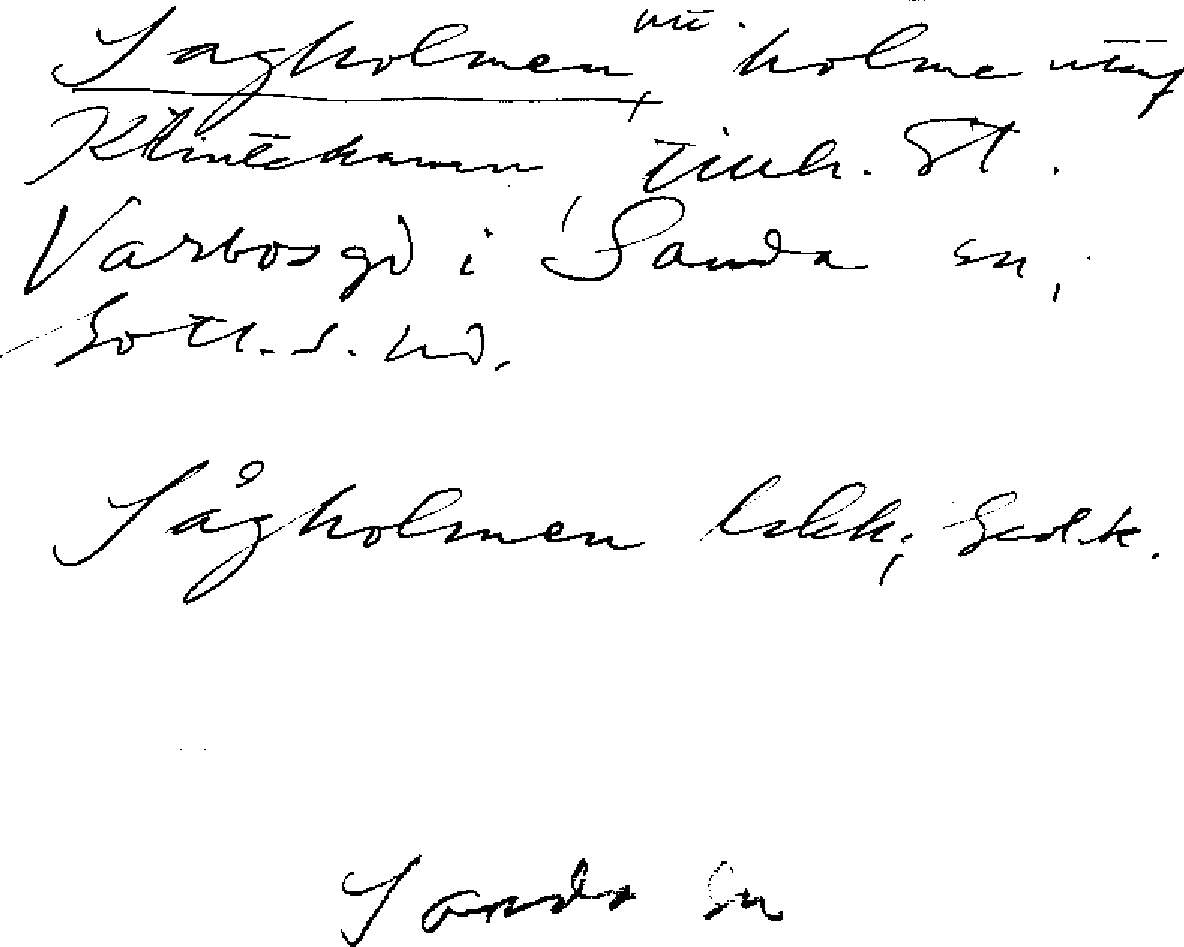 Sagholmen, holme utanf
Klintehamn, tillh. St.
Varbos gd i Sanda sn,
Gotl. s. hd.
Sågholmen Ebkk; Geolk.
Sanda sn